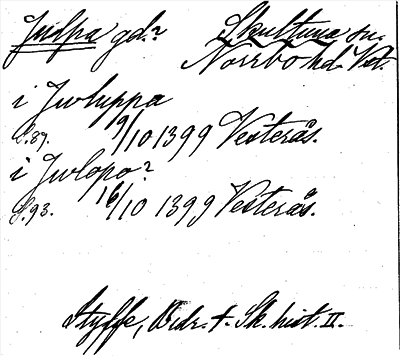 Julpa gd.? Skultuna sn.
Norrbo hd. Vst.
i Jwluppa
S.89. 19/10 1399 Vesterås.
i Jwlopo?
S.93. 16/10 1399 Vesterås.
Styffe, Bidr. t. Sk. hist. II.